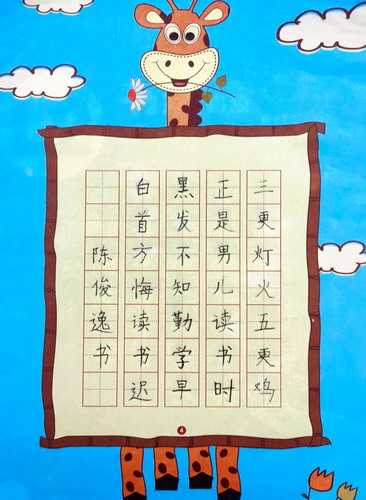 三更灯火五更鸡
正是男儿读书时
黑发不知勤学早
白首方悔读书迟
陈俊逸书
4